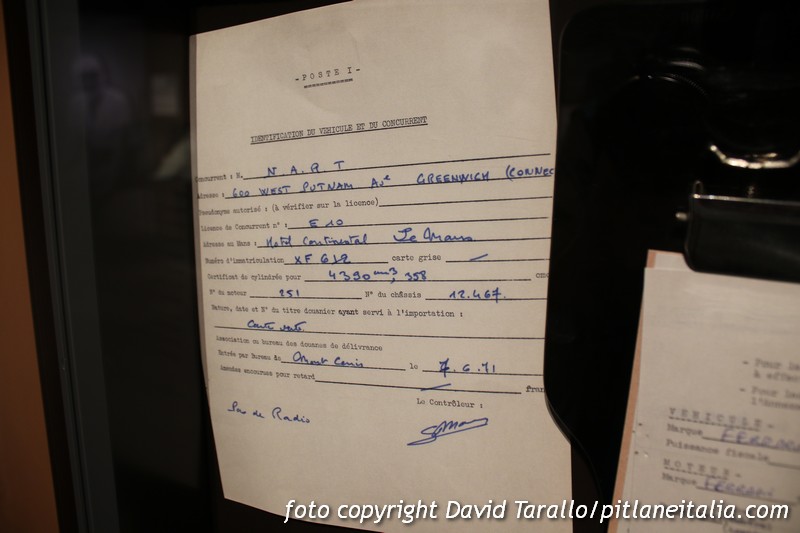 - P O S T E I -
IDENTIFICATION DU VEHICULE ET DU CONCURRENT
Concurrent : M. N. A. R. T
Adresse : 600 WEST PUTNAM Ave GREENWICH (CONNEC
Pseudonyme autorisé : (à vérifier sur la licence)
Licence de Concurrent n° : E 10
Adresse au Mans : Hotel Continental Le Mans
Numéro d'immatriculation XF 612 carte grise
Certificat de cylindrée pour 4390 cm3, 358
N° du moteur 251 N° du châssis 12.467.
Nature, date et N° du titre douanier ayant servi à l'importation :
Carte verte
Association ou bureau des douanes de délivrance
Entrée par Bureau de Mont Cenis le 7.6.71
Amendes encourues pour retard fran
Le Contrôleur :
Pas de Radio
- Pour
à effe
- Pour
l'
V E H I C U L E -
Marque FERRARI
Puissance fiscale
M O T E U R -
Marque FERRARI
foto copyright David Tarallo/pitlaneitalia.com